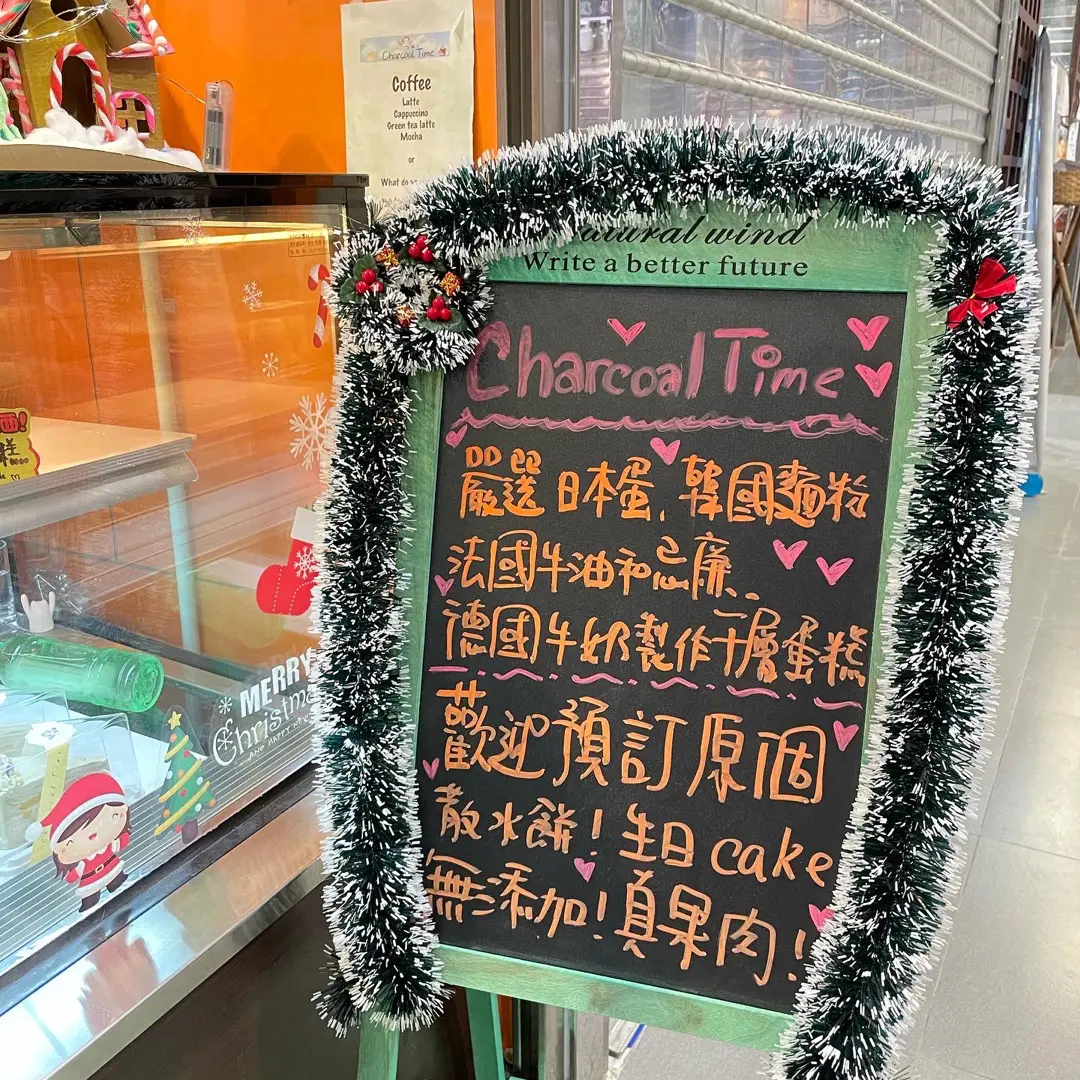 Charcoal Time
Coffee
Latte
Cappuccino
Green tea latte
Mocha
or
What do
Natural wind
Write a better future
Charcoal Time
嚴選日本蛋、韓國麵粉
法國牛油和忌廉..
德國牛奶製作千層蛋糕
歡迎預訂原個
散水餅！生日cake
無添加！真果肉！
MERRY
Christmas